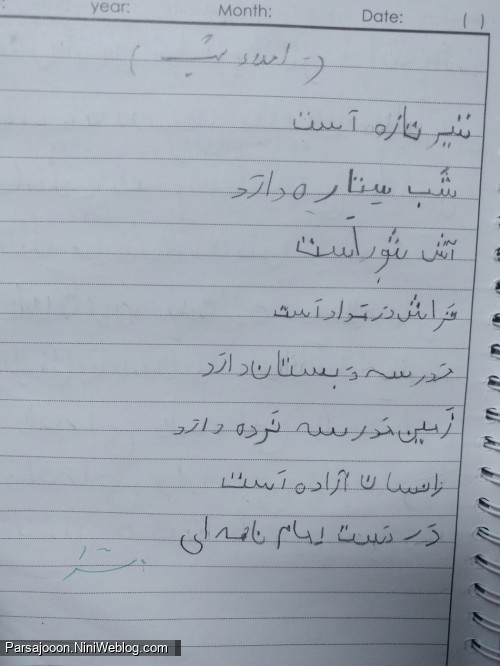 year: Month: Date: ( )
شیر تازه است
شب ستاره دارد
آش شور است
مدرسه دبستان دارد
زمین مدرسه نرده دارد
انسان آزاده است
در دست امام نامه ای
Parsajooon.NiniWeblog.com